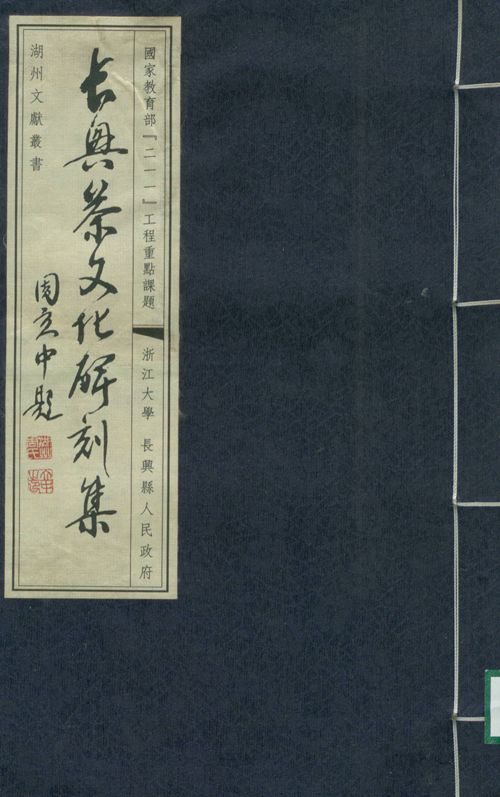 國家教育部『二一一』工程重點課題
浙江大學 長興縣人民政府
长興茶文化碑刻集
周立中題
湖州文獻叢書